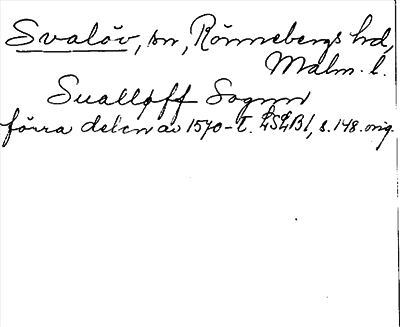 Svalöv, sn, Rönnebergs hd,
Malm. l.
Sualløff Sognn
förra delen av 1570-t. LSLB1, s. 148. orig.